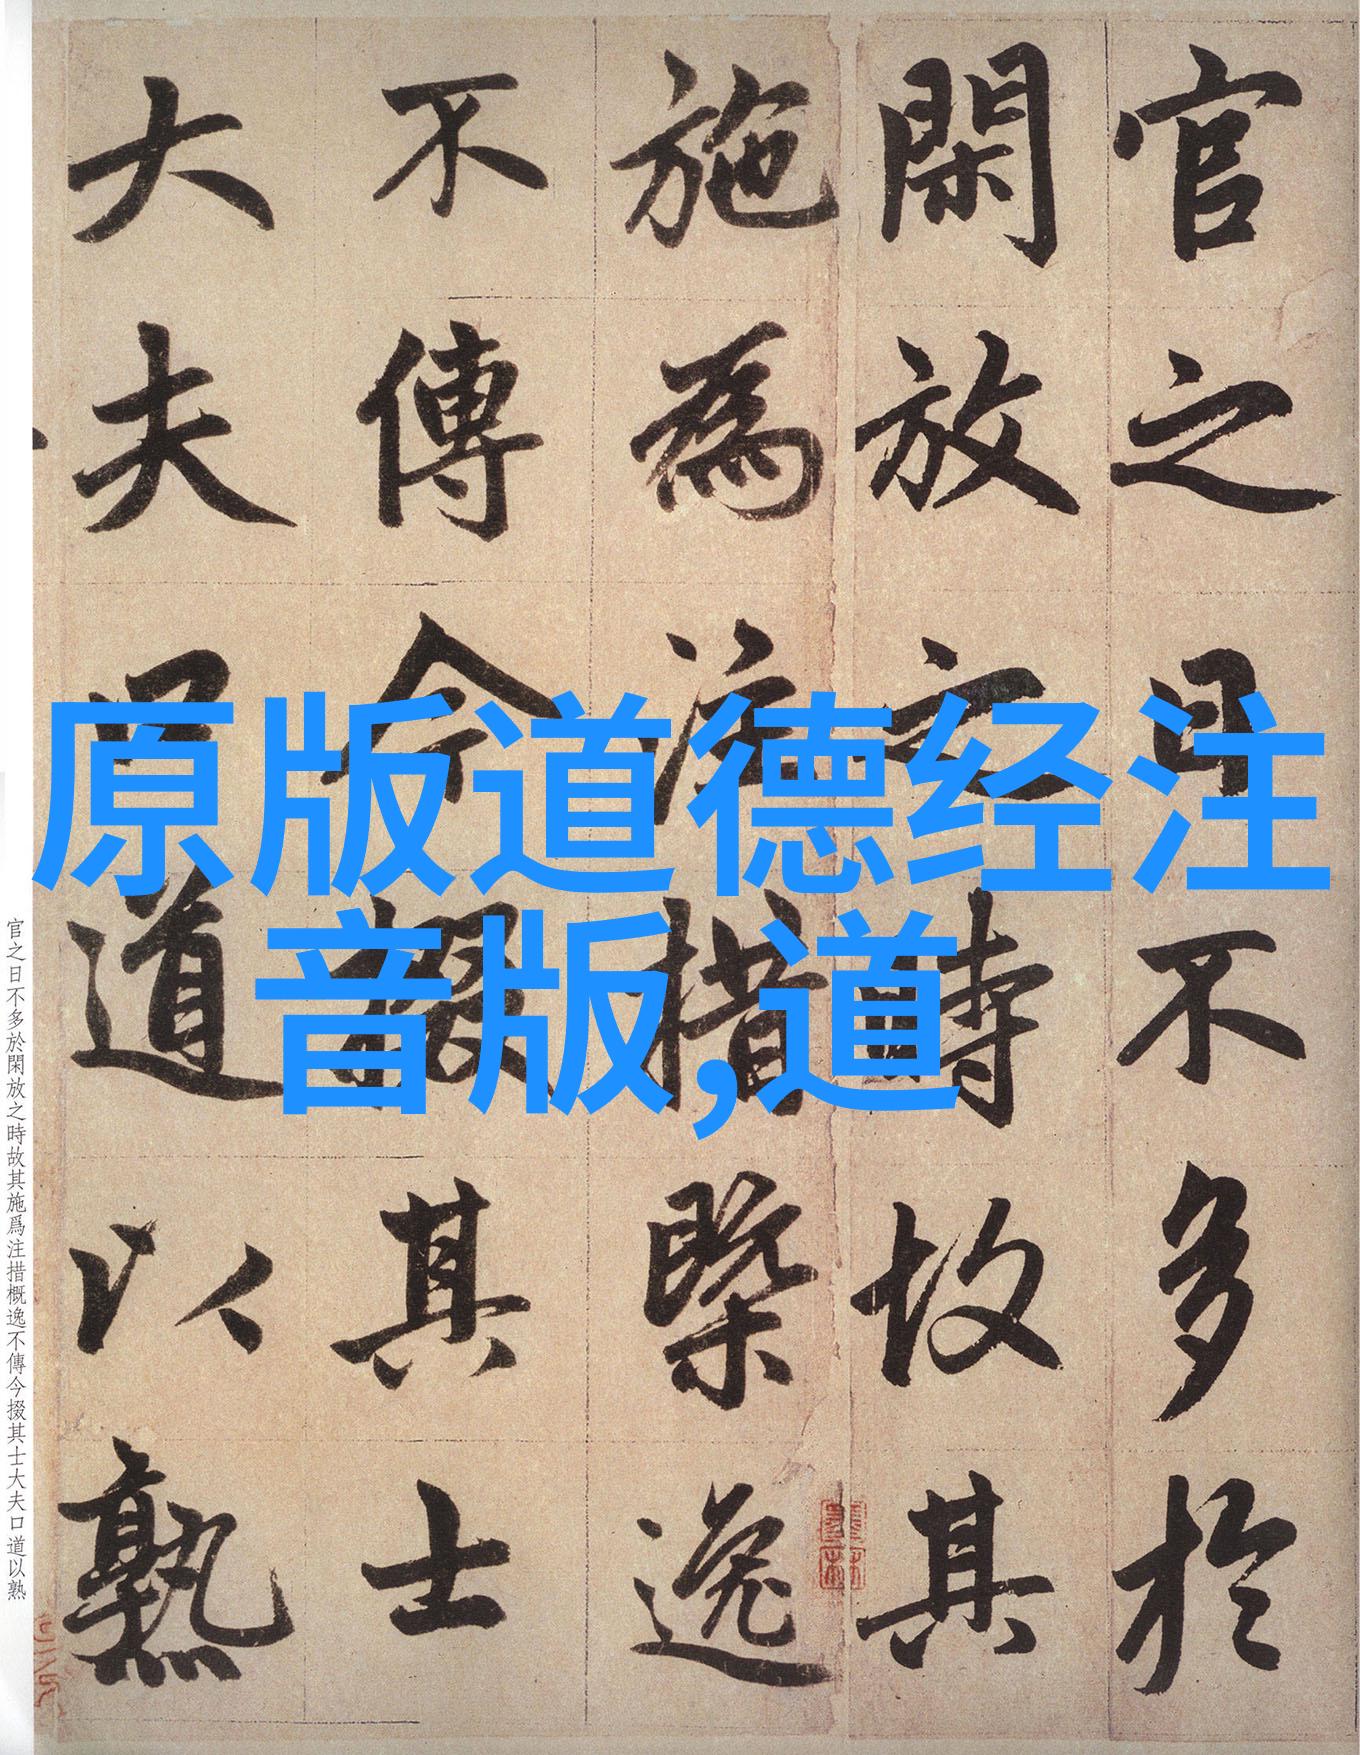 官之日不多於
閑放之時故其
施為注措槩逸
不傳今掇其士
大夫口道以熟
原版道德经注
音版,道
官之日不多於閑放之時故其施爲注措概逸不傳今掇其士大夫口道以熟